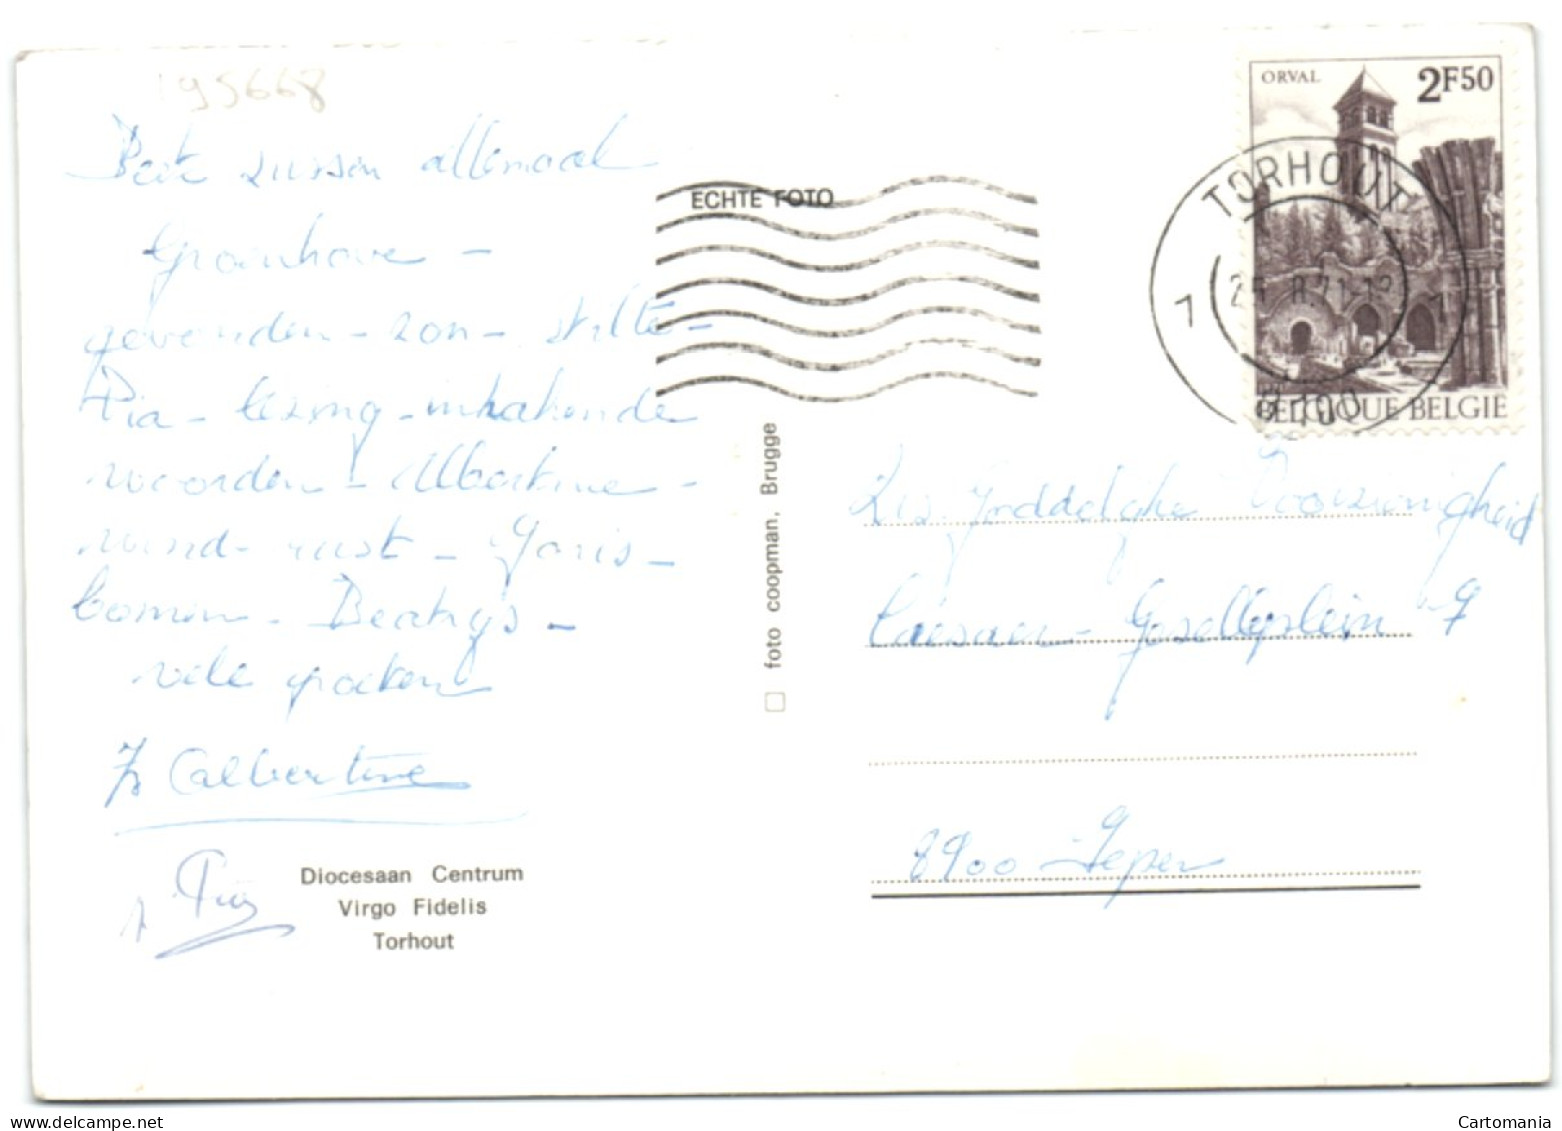 195668
Beste zussen allemaal
Groenhove -
gevonden - zon - stilte -
Pia - lezing - inhakende
woorden - Albertine -
wind - rust - Joris -
bomen - Beatrijs -
vele groeten
Zr Calbertine
Pia
Diocesaan Centrum
Virgo Fidelis
Torhout
ECHTE FOTO
foto coopman, Brugge
ORVAL 2F50
TORHOUT
BELGIQUE BELGIE
Zrs. Goddelijke Voorzienigheid
Caesar Gezelleplein 7
8900 Ieper
delcampe.net
Cartomania